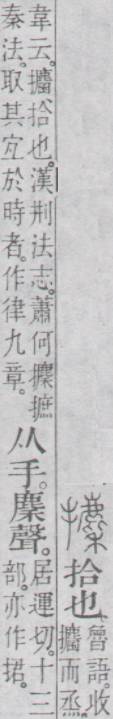 攈拾也魯語。收
攟而烝。
韋云。攟拾也。漢刑法志。蕭何攈摭
秦法。取其宐於時者。作律九章。
从手。麇聲。居運切。十三
部。亦作捃。